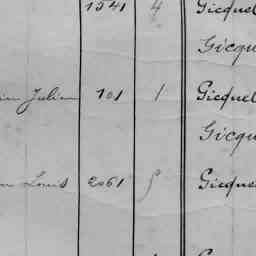 1541 4 Gicquel
Gicqu
Julien 101 1 Gicquel
Gicqu
Louis 2061 Gicque